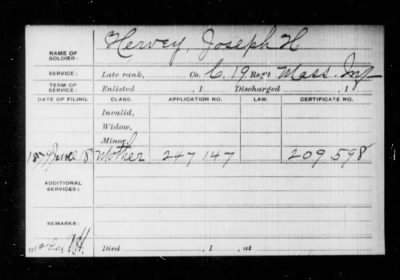 NAME OF SOLDIER: Hervey, Joseph H
SERVICE: Late rank, Co. C, 19 Reg't Mass. Inf
TERM OF SERVICE: Enlisted , 1 Discharged , 1
DATE OF FILING. CLASS. APPLICATION NO. LAW. CERTIFICATE NO.
Invalid,
Widow,
Minor,
June 18 Mother 247147 209598
ADDITIONAL SERVICES:
REMARKS:
Died , 1 , at